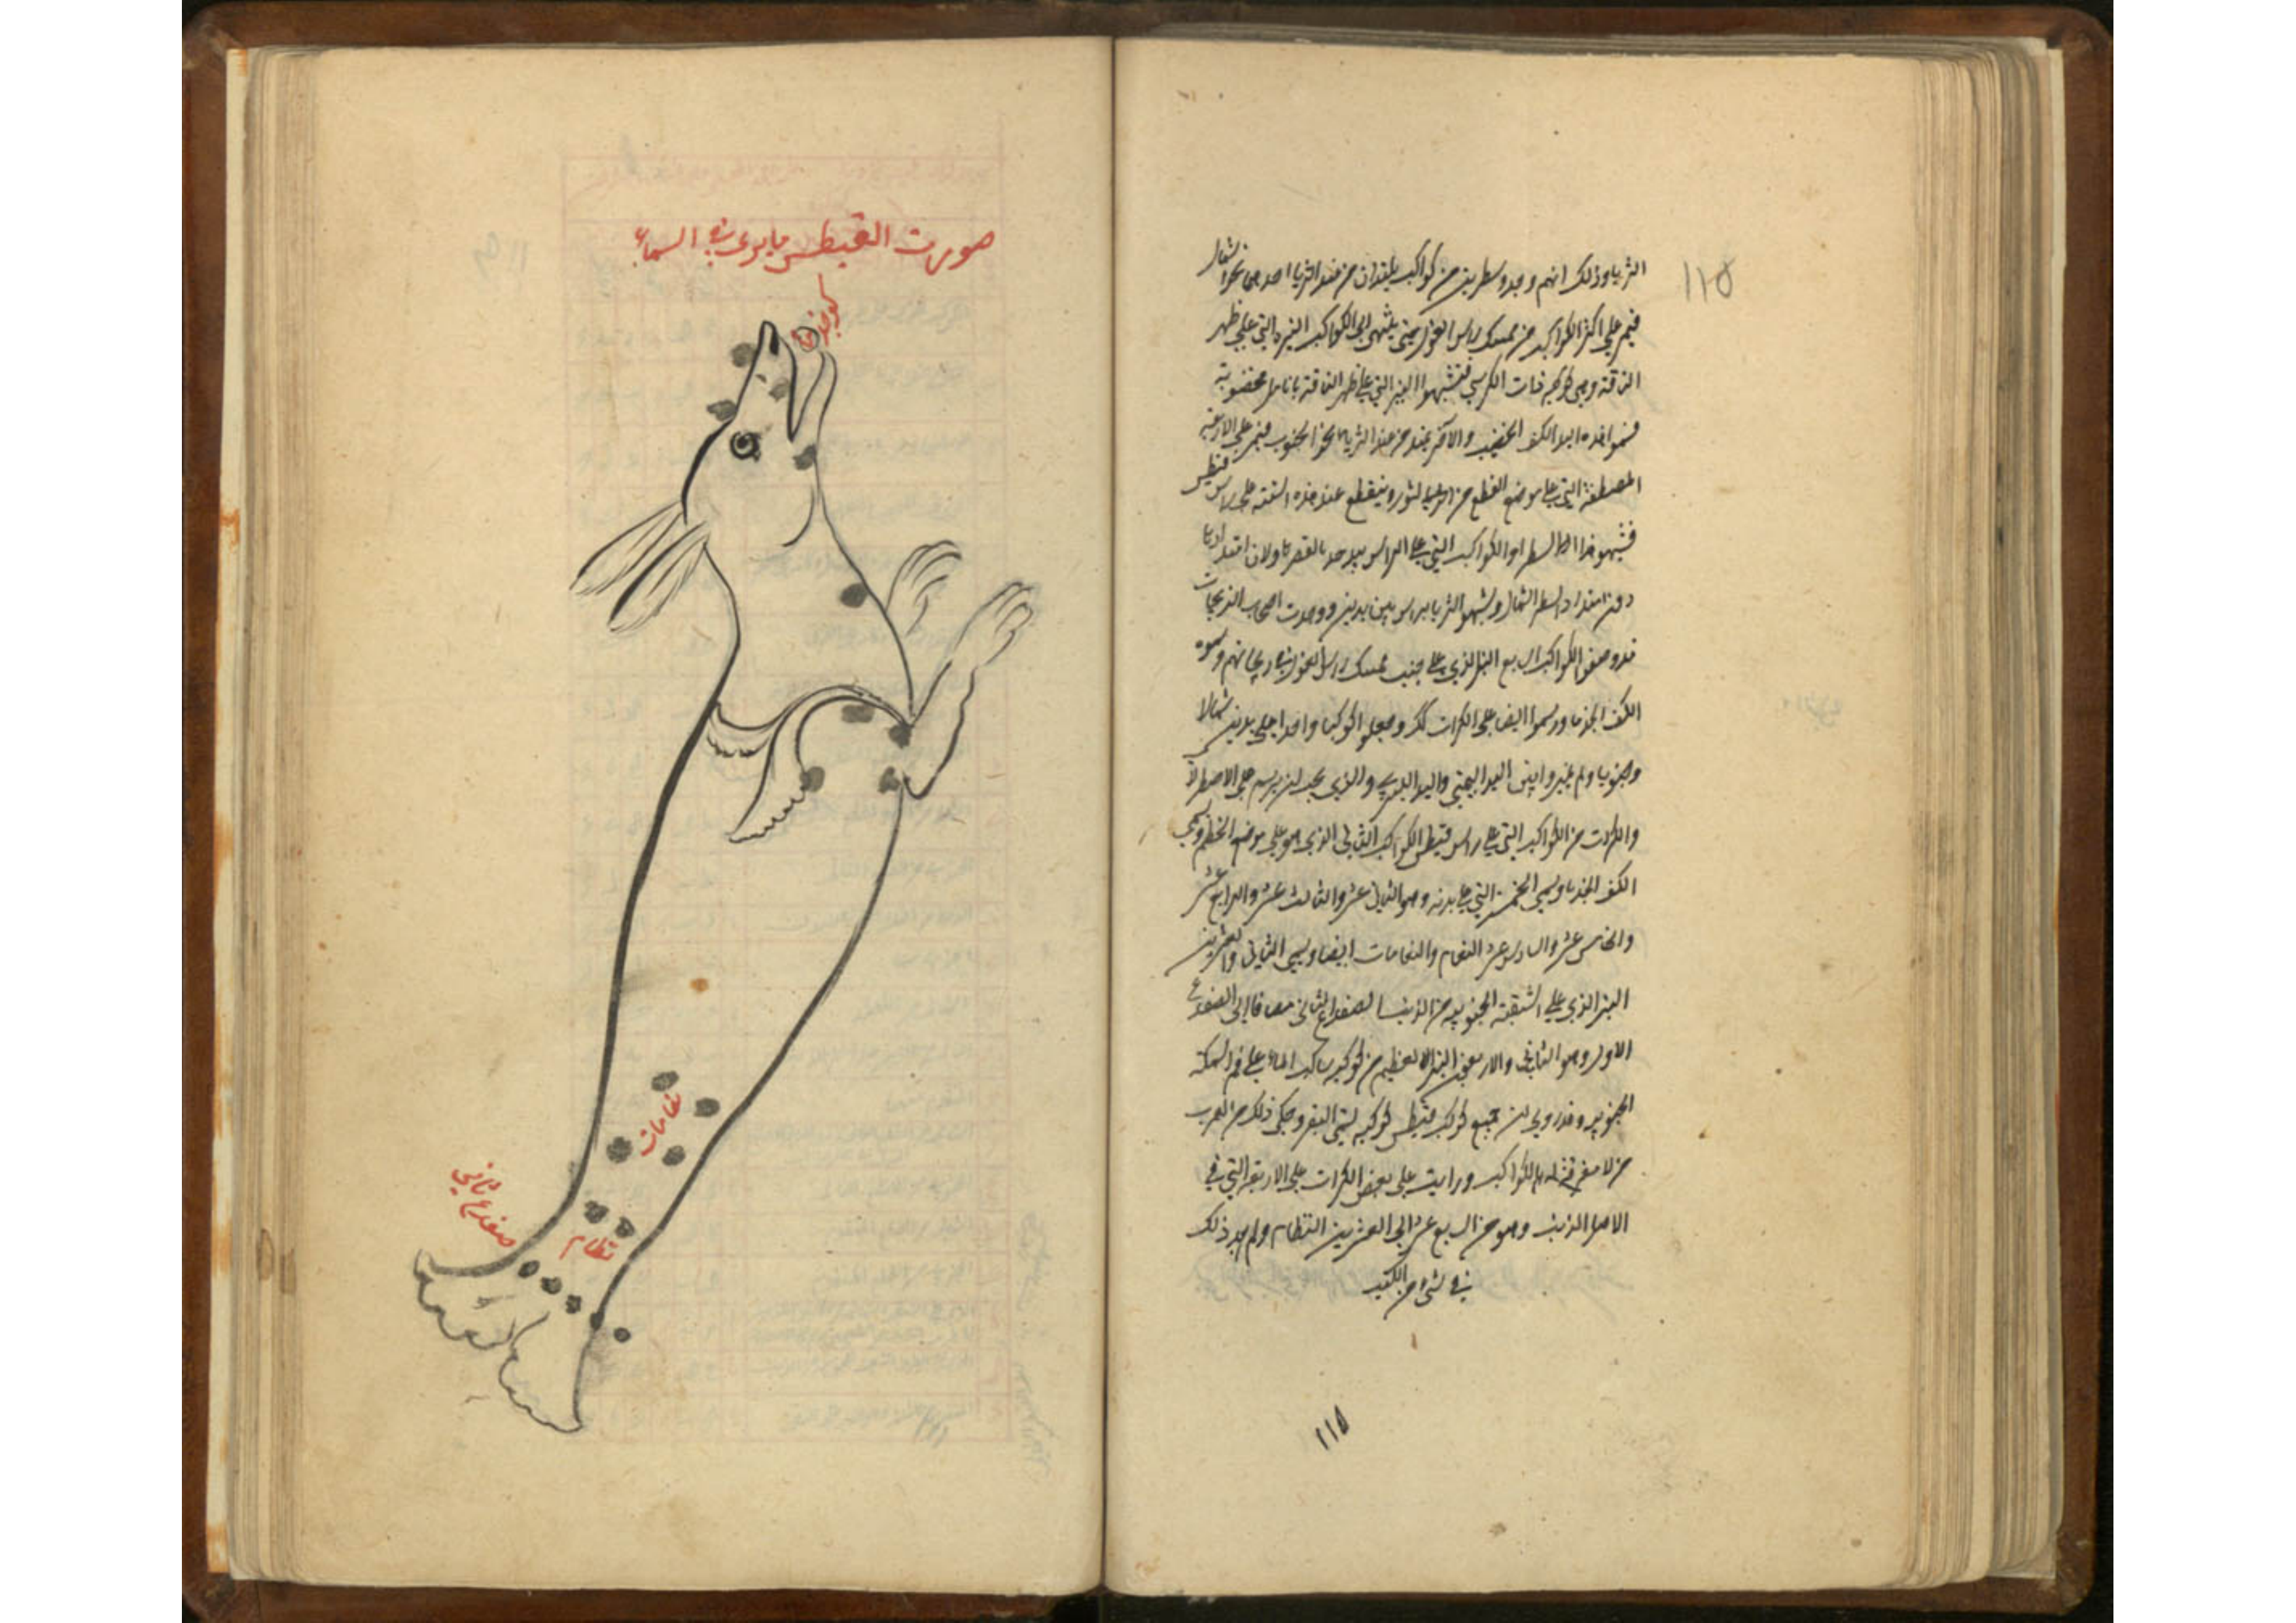 ١١٥
الثريا وذلك انهم وجدوا سطرين من كواكب يمتدان من عند الثريا احدهما نحو الشمال
فيمر على اكثر الكواكب من ممسك راس الغول حتى ينتهى الى الكواكب النيرة التي على ظهر
الناقة وهى كواكب ذات الكرسي فشبهوا النير التي على ظهر الناقة بانامل مخضوبة
فسموا هذه اليد الكف الخضيب والاخر يمتد من عند الثريا نحو الجنوب فيمر على الاربعة
المصطفة التي على موضع القطع من الثور وينقطع عند هذه الستة على راس قيطس
فشبهوا هذا السطر والكواكب التي على الراس بيد جذما لقصرها ولان امتدادها
دون امتداد السطر الشمالي وشبهوا الثريا براس بين يدين ووجدت اصحاب
قد وصفوا الكواكب الرابع النير الذي على جنب ممسك راس الغول وسموه
الكف الجذما ورسموا ايضا على الكرات وجعلوا كوكبا واحدا على يدين شمالا
وجنوبا ولم يميزوا بين اليد اليمنى واليد اليسرى والذي يجب ان يرسم على الاصطرلاب
والكرات من الكواكب التي على راس قيطس الكوكب الثاني الذي هو على موضع الخطم ويسمى
الكف الجذما ويسمى الخمسة التي على بدنه وهو الثاني عشر والثالث عشر والرابع عشر
والخامس عشر والسادس عشر النعام والنعامات ايضا ويسمى الثاني والعشرين
النير الذي على الشعبة الجنوبية من الذنب الضفدع الثاني مضافا الى الضفدع
الاول وهو الثاني والاربعين النير العظيم من كواكب ساكب الماء على فم السمكة
الجنوبي وقد روي ان جميع كواكب قيطس كواكب يسمى البقر وحكى ذلك من العرب
من لا معرفة له بالكواكب ورايت على بعض الكرات على الاربعة التي في
الاصل الذنب وهو من السابع عشر الى العشرين النظام ولم اجد ذلك
في شيء من الكتب
١١٥
صورت القيطس ما يرى في السماء
نعامات
نظام
ضفدع ثاني